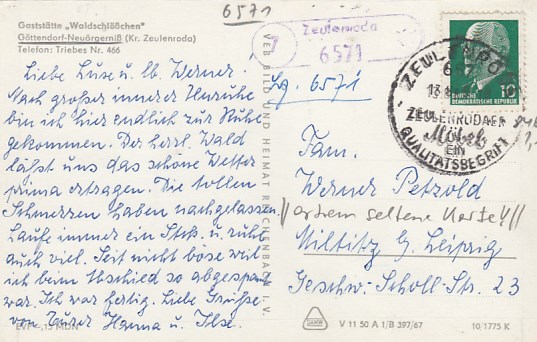 6571
Gaststätte „Waldschlößchen"
Göttendorf-Neuärgerniß (Kr. Zeulenroda)
Telefon: Triebes Nr. 466
Liebe Luise u. lb. Werner.
Nach großer innerer Unruhe
bin ich hier endlich zur Ruhe
gekommen. Der herrl. Wald
läßt uns das schöne Wetter
prima ertragen. Die tollen
Schmerzen haben nachgelassen
Laufe immer ein Stck. u. ruhe
auch viel. Seit nicht böse will
ich beim Abschied so abgespannt
war. Ich war fertig. Liebe Grüße
von Eurer Hanna u. Ilse.
EVP -,15 MDN
VEB BILD UND HEIMAT REICHENBACH I. V.
7
Zeulenroda
6571
Lg. 6571
ZEULENRODA
13
ZEULENRODAER
Möbel
EIN
QUALITÄTSBEGRIFF
10
DEUTSCHE
DEMOKRATISCHE REPUBLIK
Fam.
Werner Petzold
//extrem seltene Karte!//
Miltitz b. Leipzig
Geschw.-Scholl-Str. 23
V 11 50 A 1/B 397/67
10/1775 K